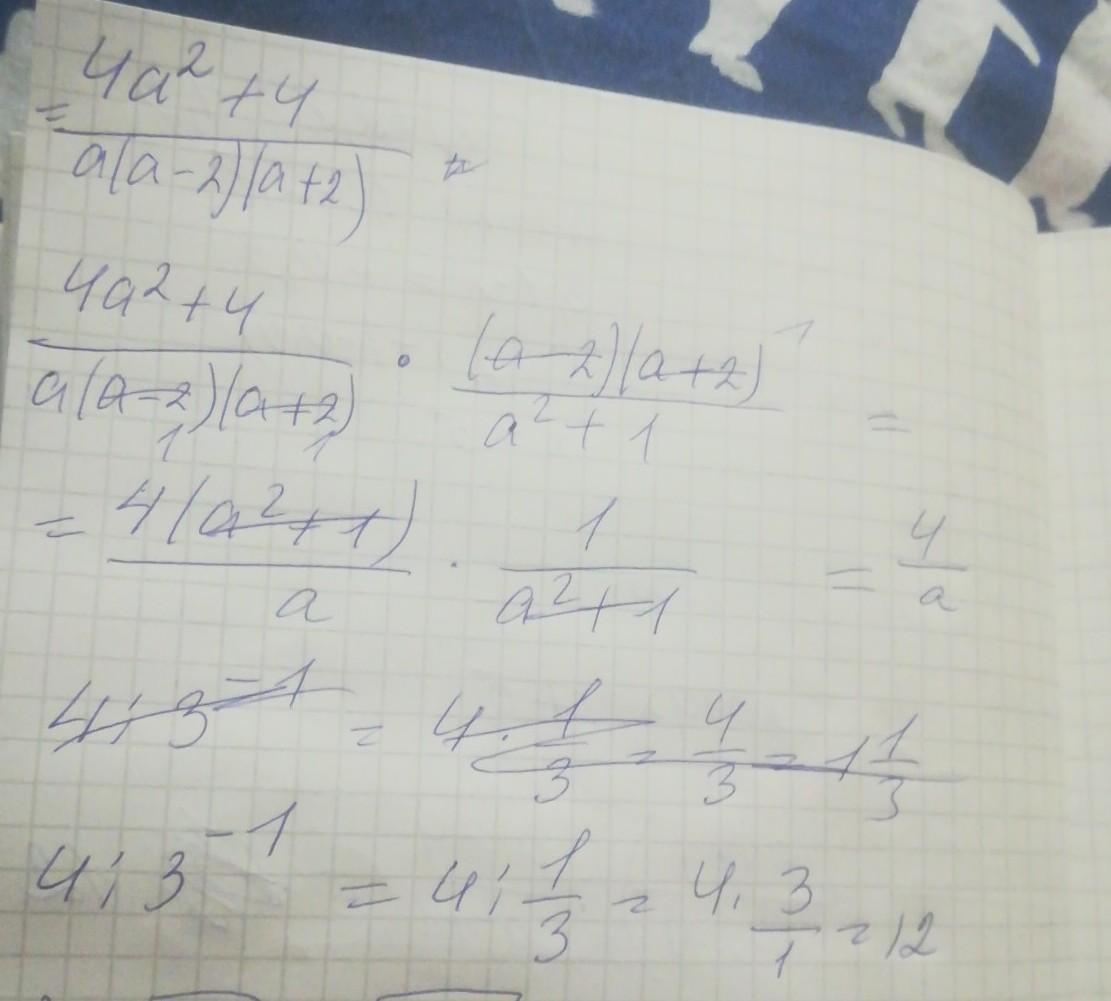 = (4a² + 4)/(a(a-2)(a+2))
(4a² + 4)/(a(a-2)(a+2)) · ((a-2)(a+2))/(a² + 1) =
= (4(a² + 1))/a · 1/(a² + 1) = 4/a
4 : 3⁻¹ = 4 · 1/3 = 4/3 = 1 1/3
4 : 3⁻¹ = 4 : 1/3 = 4 · 3/1 = 12